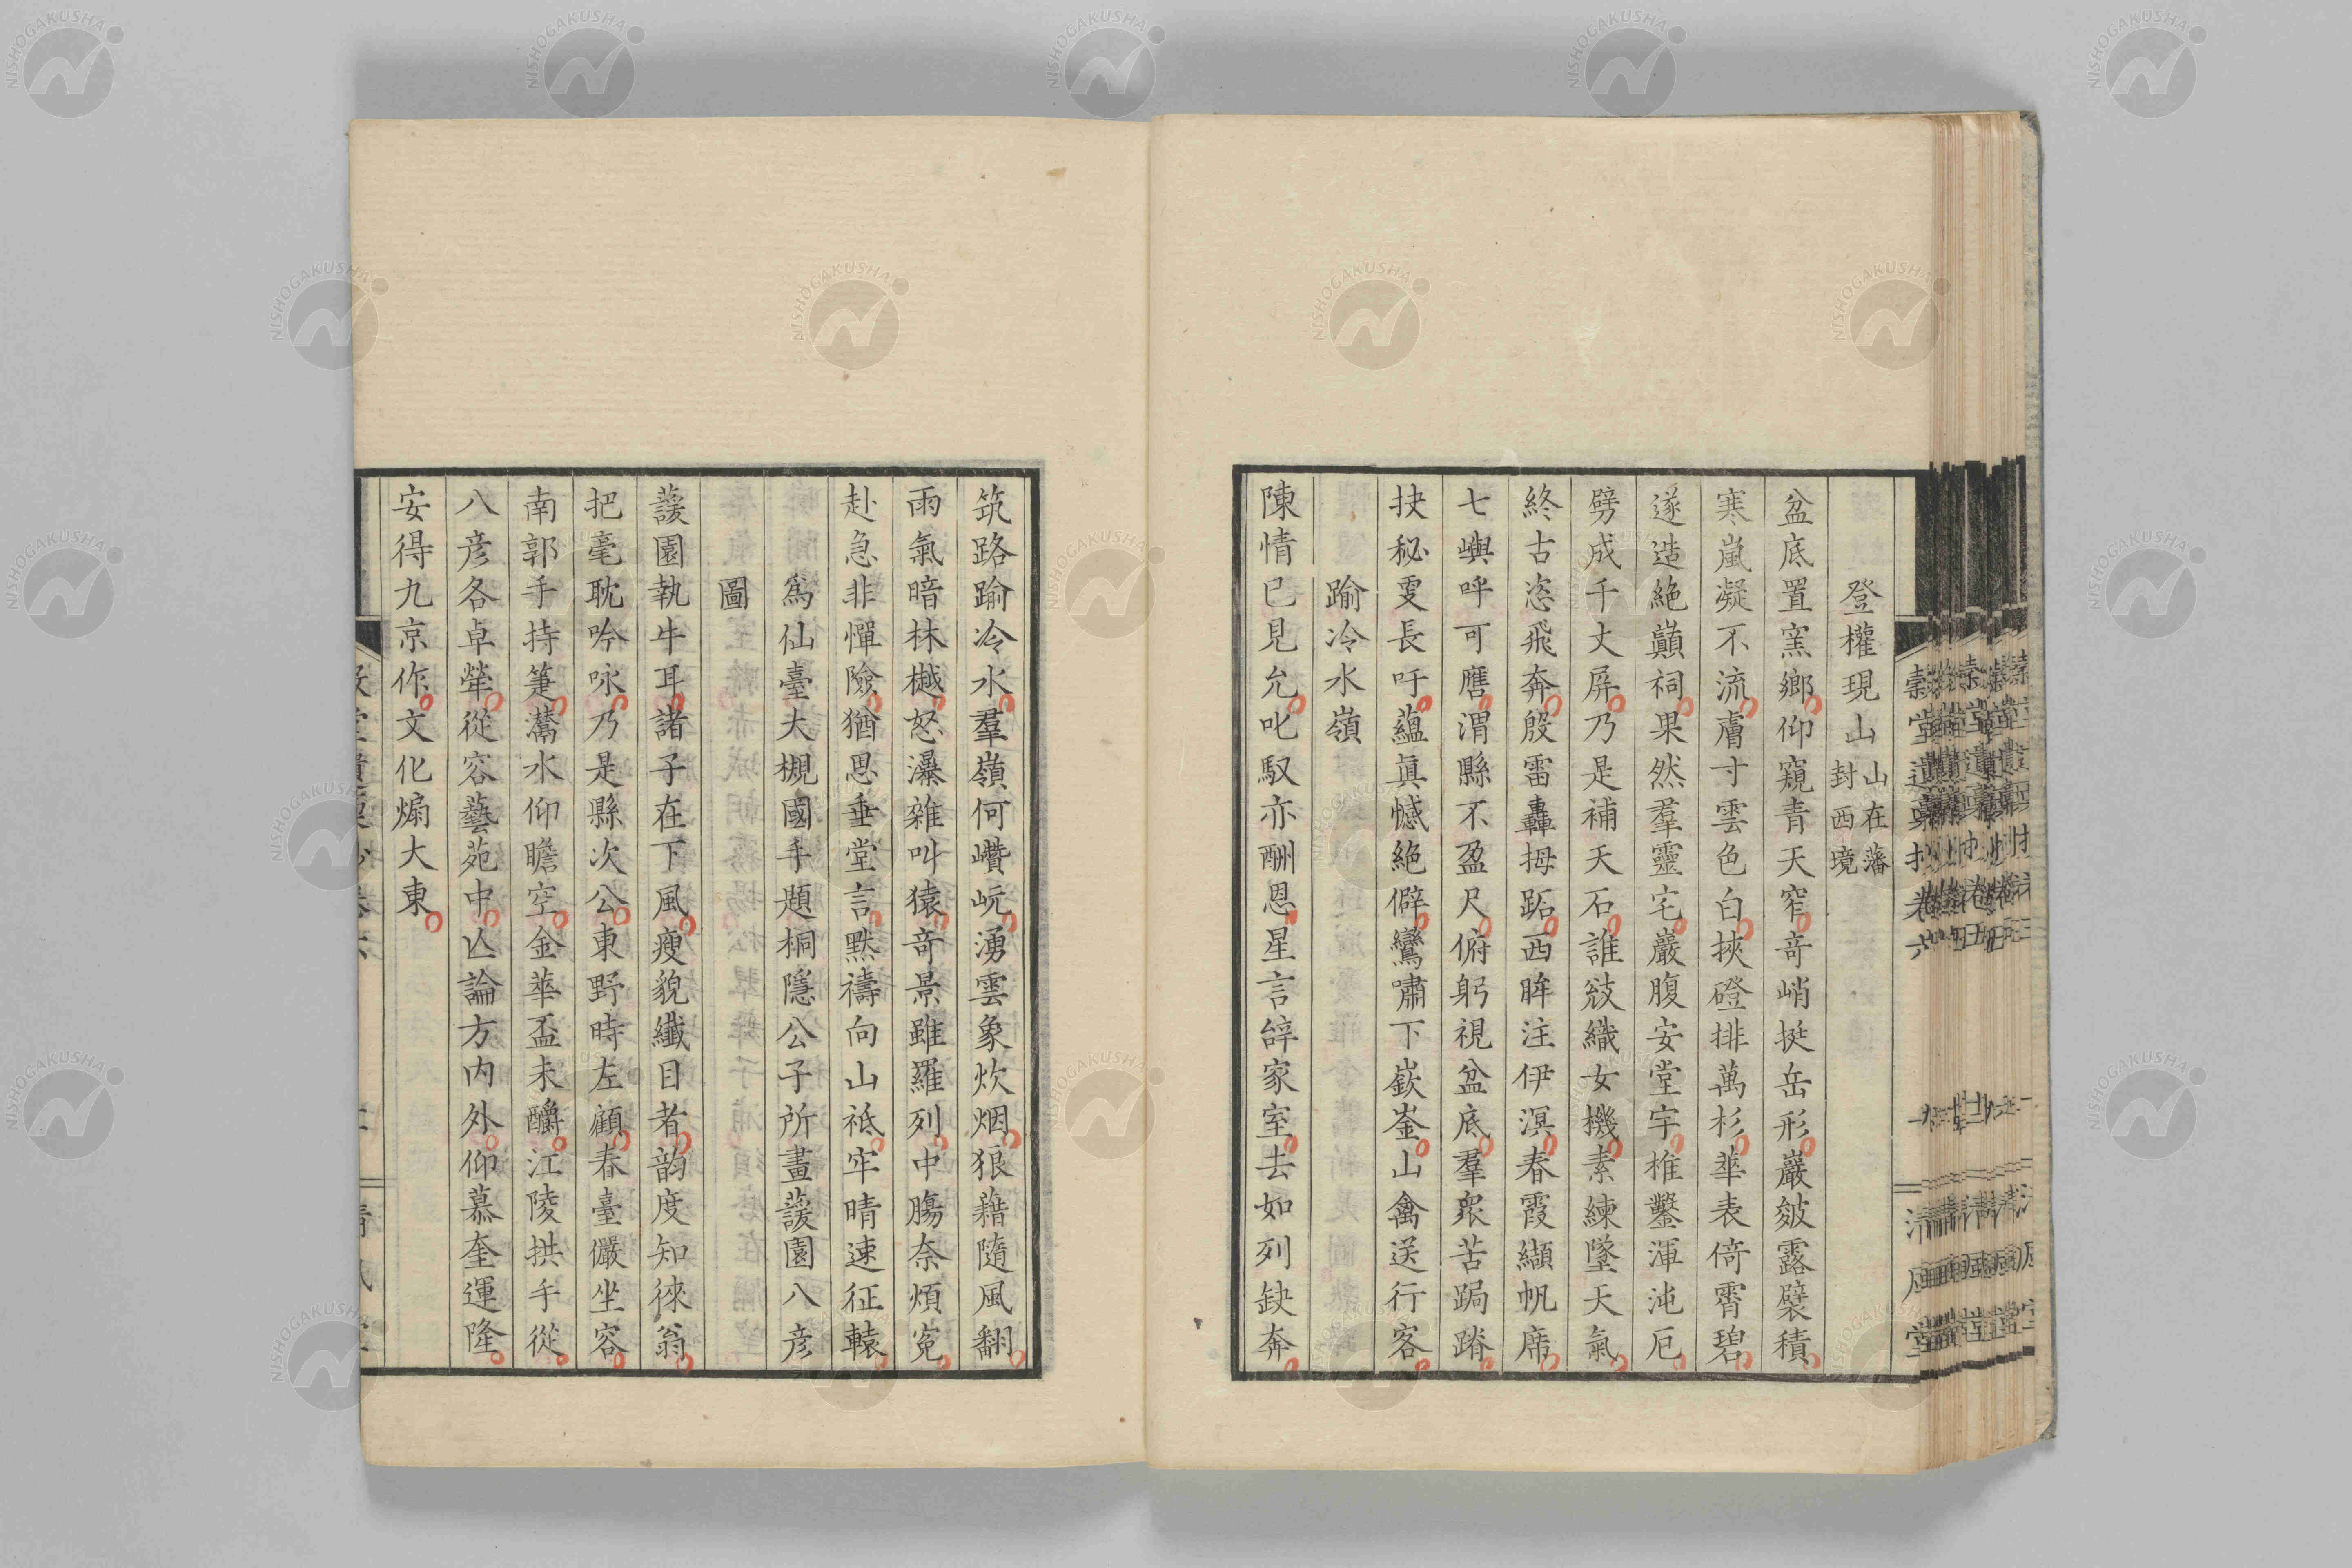 登權現山 山在藩封西境
盆底置窯鄉仰窺青天窄奇峭挺岳形巖皴露襞積
寒嵐凝不流膚寸雲色白挾磴排萬杉華表倚霄碧
遂造絶巓祠果然羣靈宅巖腹安堂宇椎鑿渾沌厄
劈成千丈屏乃是補天石誰敍織女機素練墜天氣
終古恣飛奔殷雷轟拇跖西眸注伊溟春霞纈帆席
七嶼呼可譍渭縣不盈尺俯躬視盆底羣衆苦跼蹐
抉秘叓長吁蘊眞憾絶僻鸞嘯下嶔崟山禽送行客
踰冷水嶺
陳情已見允叱馭亦酬恩星言辭家室去如列缺奔
筑路踰冷水羣嶺何巑岏湧雲象炊烟狼藉隨風翻
雨氣暗林樾怒瀑雜叫猿奇景雖羅列中腸奈煩寃
赴急非憚險猶思垂堂言默禱向山祗牢晴速征轅
爲仙臺大槻國手題桐隱公子所畫蘐園八彦
圖
蘐園執牛耳諸子在下風瘦貌纖目者韵度知徠翁
把毫耽吟咏乃是縣次公東野時左顧春臺儼坐容
南郭手持箑蕅水仰瞻空金華盃未釂江陵拱手從
八彦各卓犖從容藝苑中亾論方内外仰慕奎運隆
安得九京作文化煽大東
NISHOGAKUSHA